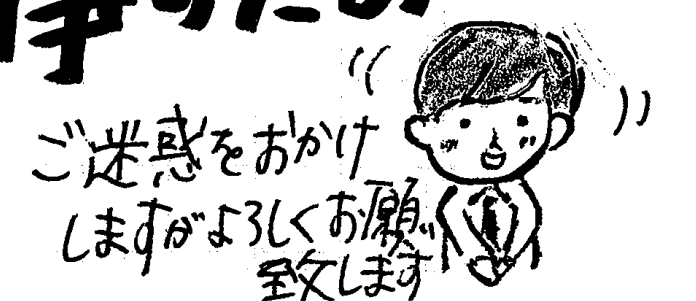 事のため
ご迷惑をおかけ
しますがよろしくお願い
致します